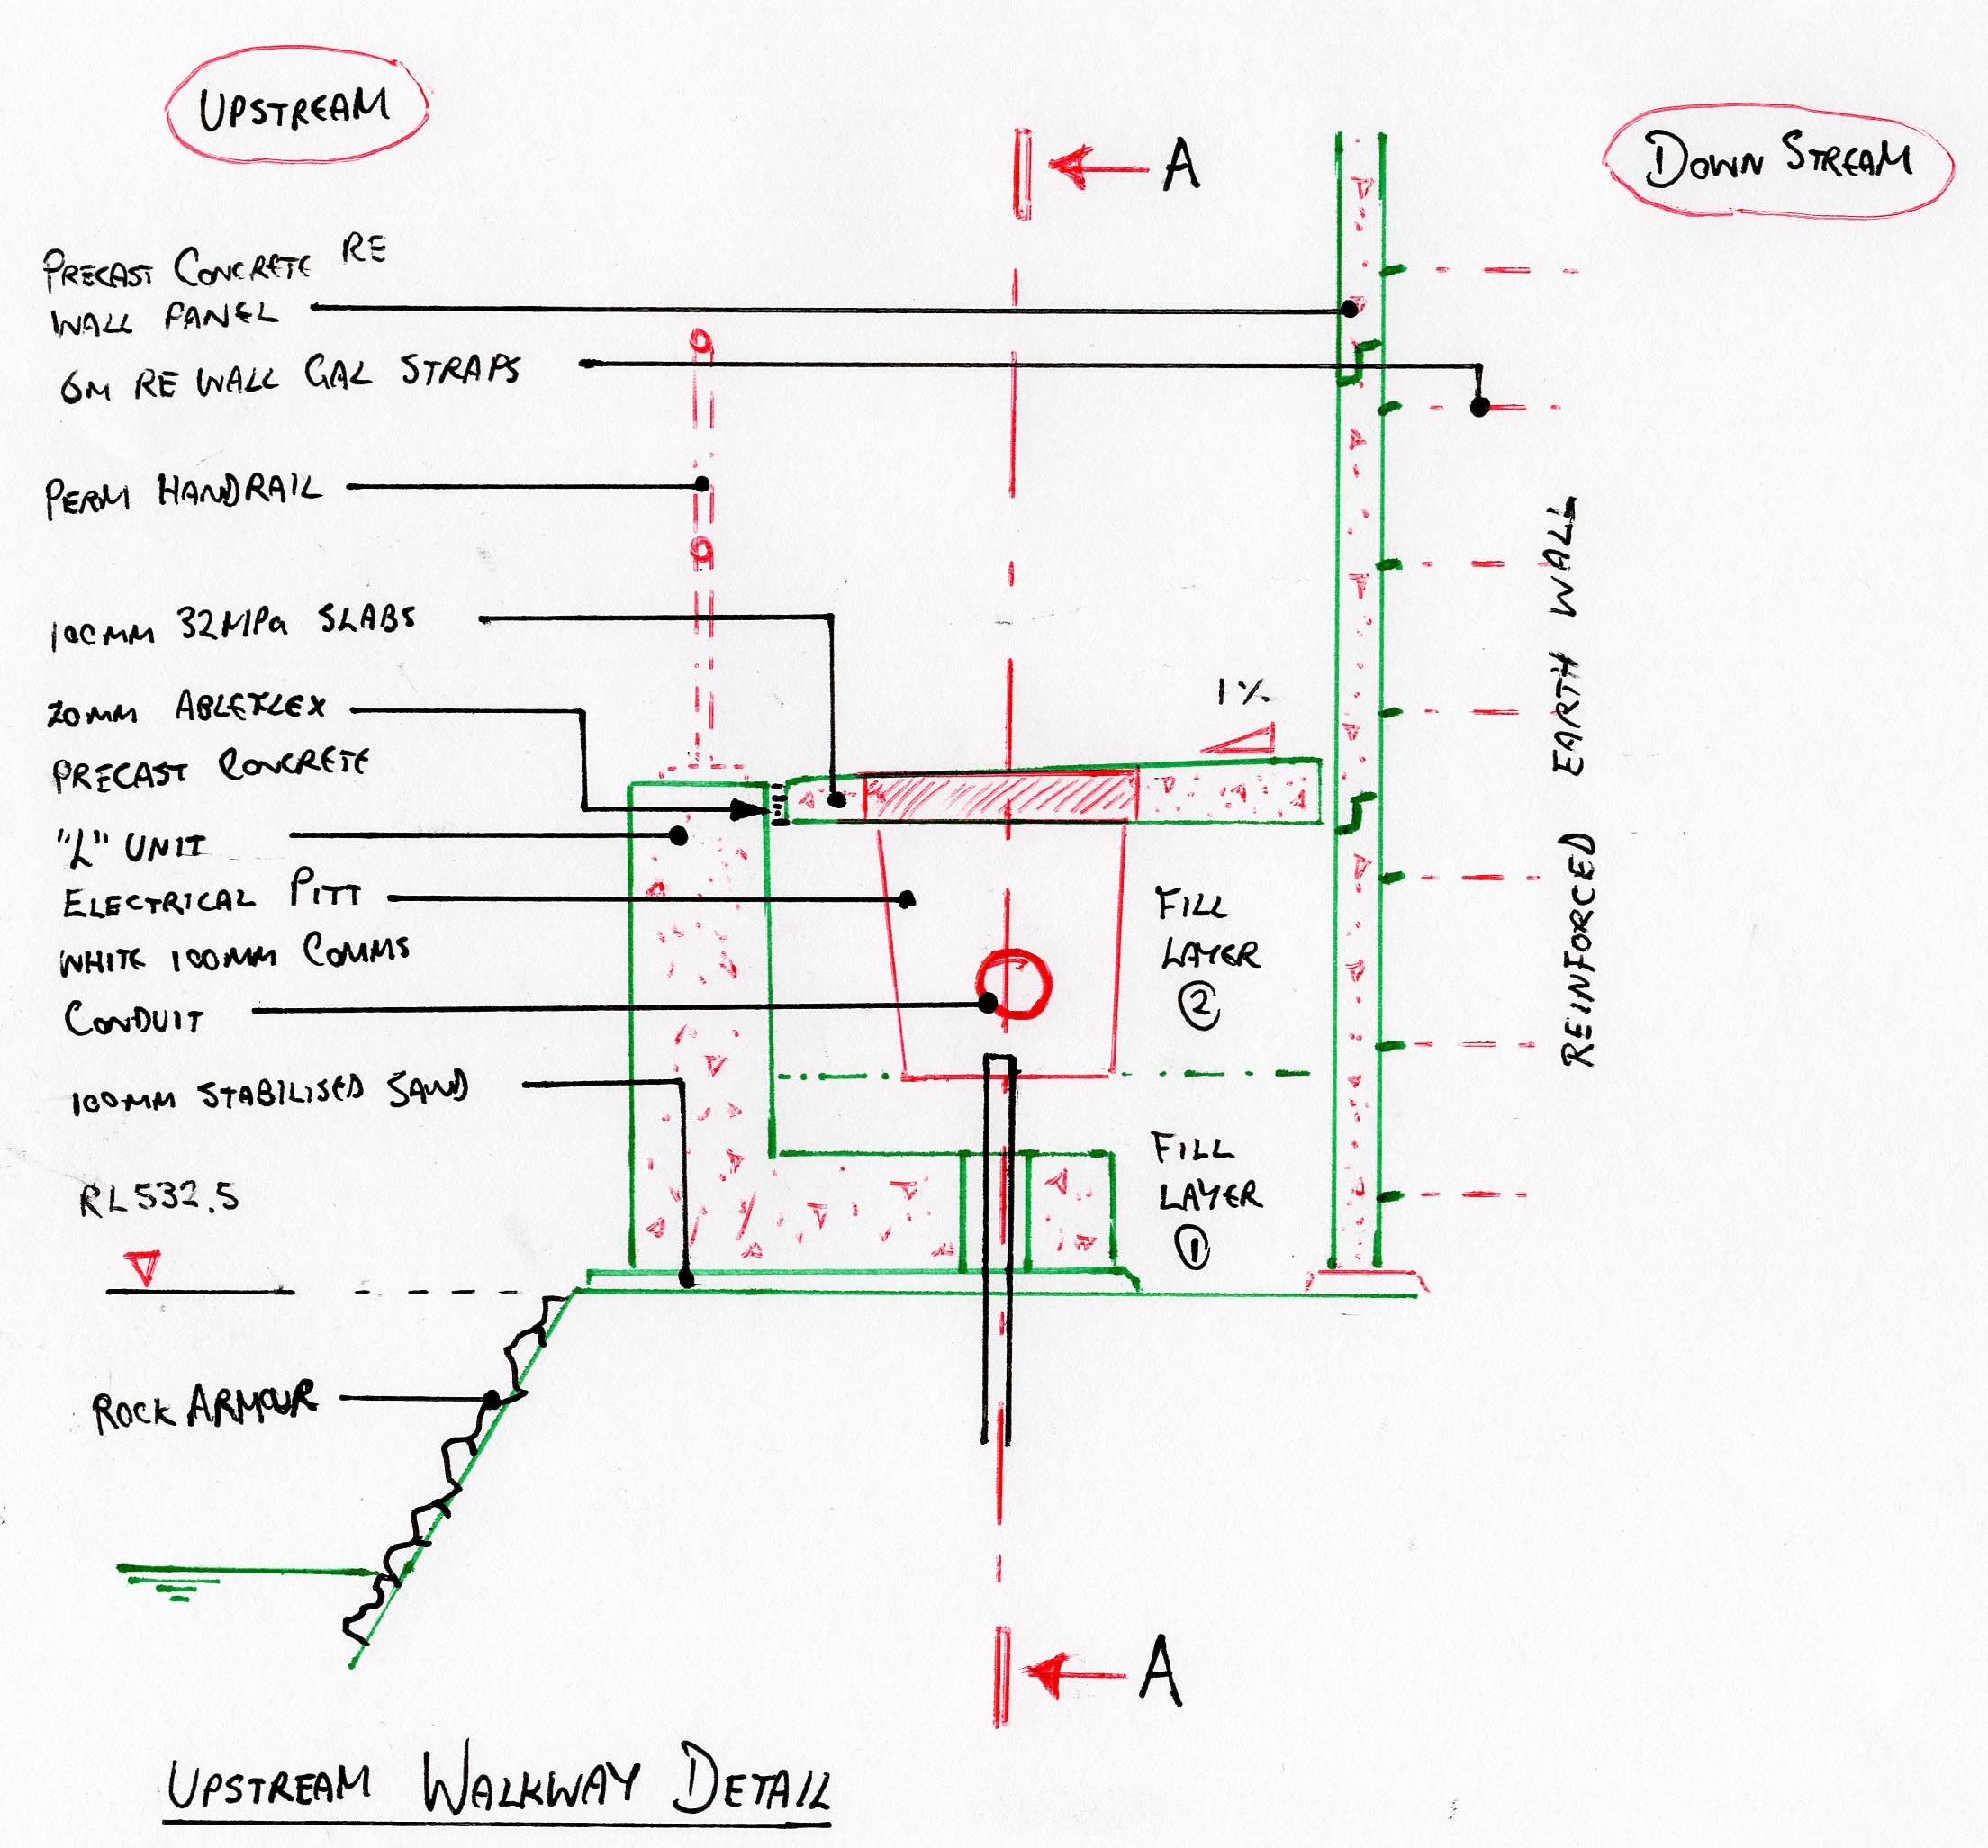 UPSTREAM
DOWN STREAM
A
PRECAST CONCRETE RE
WALL PANEL
6M RE WALL GAL STRAPS
PERM HANDRAIL
100MM 32MPa SLABS
1%
20MM ABLEFLEX
PRECAST CONCRETE
"L" UNIT
ELECTRICAL PITT
WHITE 100MM COMMS
CONDUIT
FILL
LAYER
2
REINFORCED EARTH WALL
100MM STABILISED SAND
FILL
LAYER
1
RL532.5
ROCK ARMOUR
A
UPSTREAM WALKWAY DETAIL